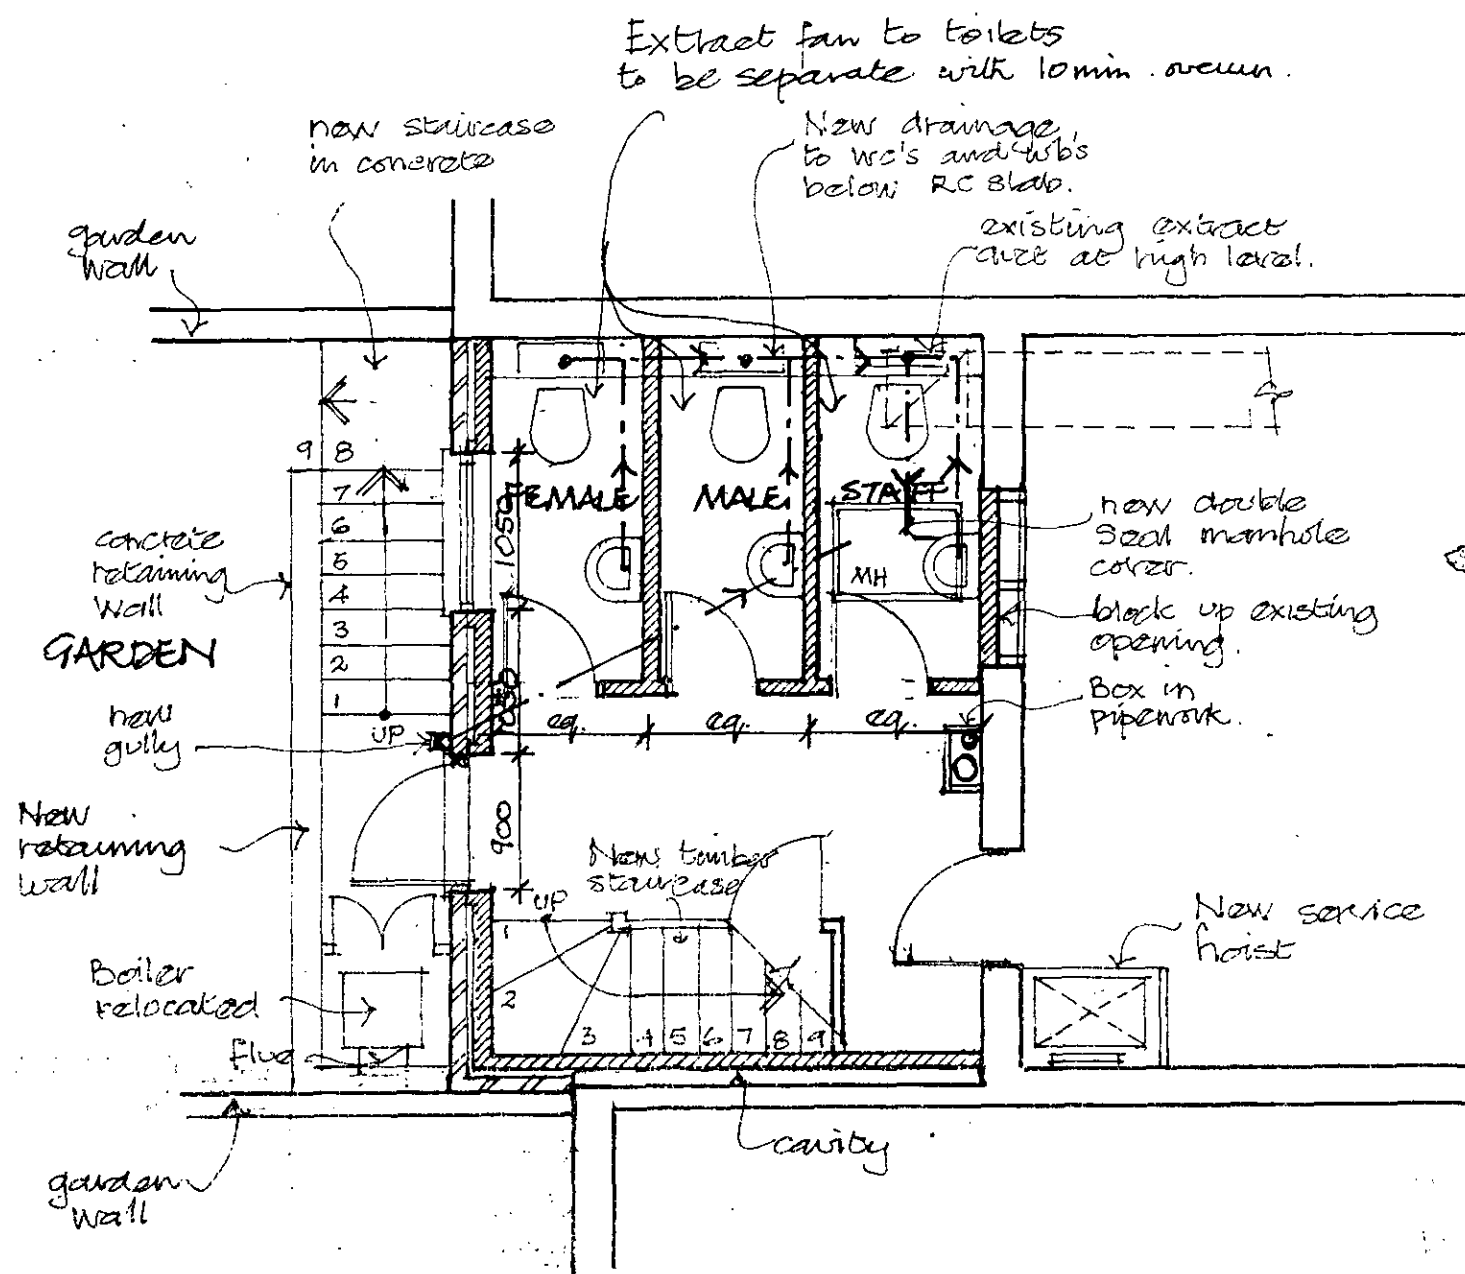 Extract fan to toilets
to be separate with 10min. overrun.
new staircase
in concrete
New drainage
to wc's and wb's
below RC slab.
existing extract
duct at high level.
garden
wall
9 8
7
6
5
4
3
2
1
UP
FEMALE
MALE
STAFF
MH
1050
1050
900
eq.
eq.
eq.
concrete
retaining
wall
GARDEN
new
gully
New
retaining
wall
new double
seal manhole
cover.
block up existing
opening.
Box in
pipework.
New timber
staircase
UP
1
2
3 4 5 6 7 8 9
New service
hoist
Boiler
relocated
flue
cavity
garden
wall